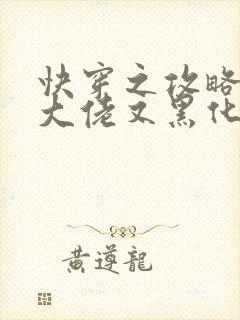 快穿之攻略
大佬又黑化
黄遵龍